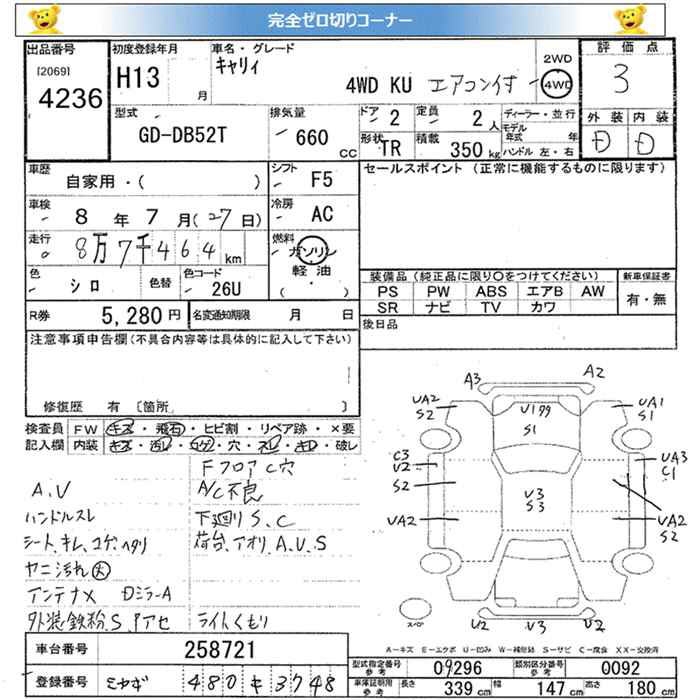 完全ゼロ切りコーナー
出品番号
[2069]
4236
初度登録年月
H13 月
車名・グレード
キャリィ
4WD KU エアコン付
2WD
4WD
評価点
3
型式
GD-DB52T
排気量
660 CC
ドア 2
定員 2 人
形状 TR
積載 350 kg
ディーラー・並行
モデル年式 年
ハンドル 左・右
外装 内装
D D
車歴
自家用・( )
シフト F5
セールスポイント (正常に機能するものに限ります)
車検 8 年 7 月 (27日)
冷房 AC
走行 8万7千464 km
燃料
ガソリン
軽油
( )
色 シロ
色替
色コード 26U
装備品 (純正品に限り○をつけてください)
新車保証書
PS PW ABS エアB AW
有・無
SR ナビ TV カワ
R券 5,280 円
名変通知期限 月 日
後日品
注意事項申告欄(不具合内容等は具体的に記入して下さい)
修復歴 有 〔箇所 〕
検査員 FW キズ・飛石・ヒビ割・リペア跡・×要
記入欄 内装 キズ・汚レ・コゲ・穴・スレ・キレ・破レ
Fフロア C穴
A.V
A/C不良
ハンドルスレ
下廻りS.C
シート.キレ.コゲ.ヘタリ
荷台.アオリ.A.U.S
ヤニ汚れ大
アンテナX DミラーA
外装.鉄粉.S.アセ
ライトくもり
A3
A2
UA2
S2
U199
S1
UA1
S1
C3
U2
S2
UA2
U3
S3
UA3
C1
UA2
S2
U2
U3
U2
A-キズ E-エクボ U-凹み W-補修跡 S-サビ C-腐食 XX-交換済
車台番号 258721
登録番号 ミヤギ 480 キ 3748
型式指定番号 参考 09296
類別区分番号 参考 0092
車庫証明用 参考 長さ 339 cm 幅 147 cm 高さ 180 cm